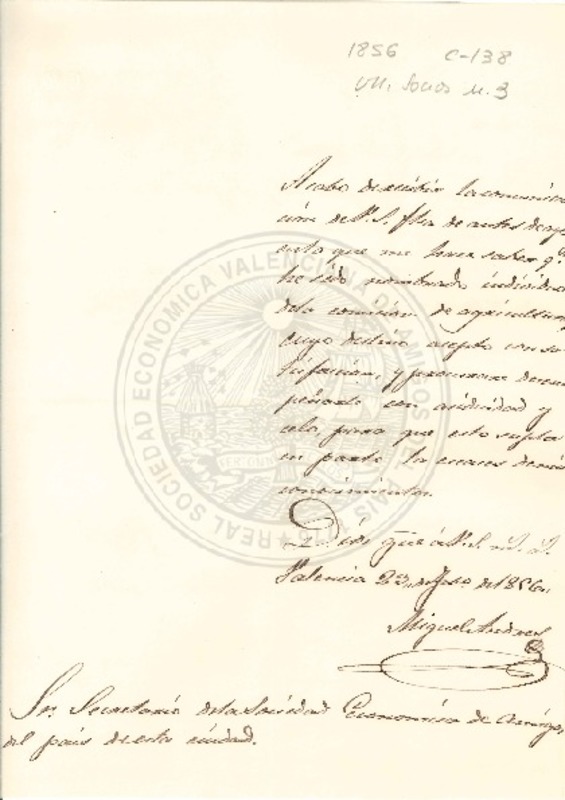 1856 C-138
VII. Socios n. 3
Acabo de recibir la comunica
cion de V. S. fha de antes de aye
en la que me hace saber q.e
he sido nombrado individuo
dela comision de agricultura
cuyo destino acepto con sa
tisfaccion, y procurare desem
peñarlo con actividad y
celo, para que esto supla
en parte la escases de mis
conocimientos.
Dios gue á V. S. m. a.
Valencia 23 de de 1856.
Miguel Andres
Sr. Secretario dela Sociedad Economica de Amigos
del pais de esta ciudad.
REAL SOCIEDAD ECONOMICA VALENCIANA DE AMIGOS DEL PAIS